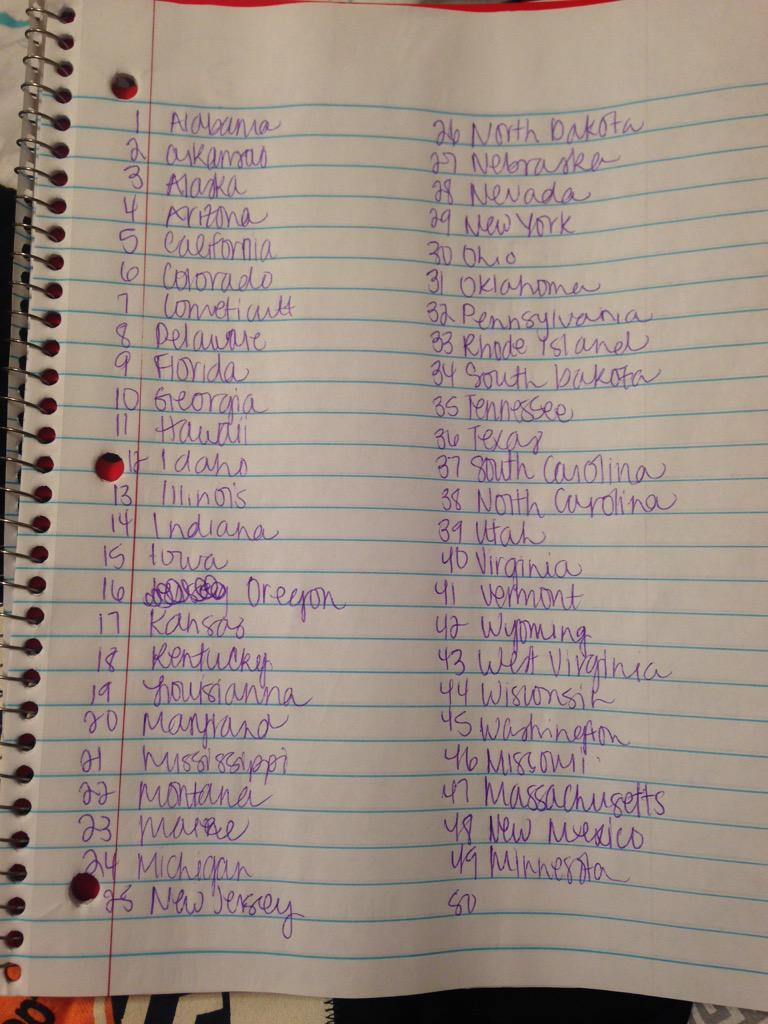 1 Alabama
2 arkansas
3 Alaska
4 Arizona
5 California
6 Colorado
7 Conneticutt
8 Delaware
9 Florida
10 Georgia
11 Hawaii
12 Idaho
13 Illinois
14 Indiana
15 Iowa
16 Oregon
17 Kansas
18 Kentucky
19 Louisianna
20 Maryland
21 Mississippi
22 Montana
23 Maine
24 Michigan
25 New Jersey
26 North Dakota
27 Nebraska
28 Nevada
29 New York
30 Ohio
31 Oklahoma
32 Pennsylvania
33 Rhode Island
34 South Dakota
35 Tennessee
36 Texas
37 South Carolina
38 North Carolina
39 Utah
40 Virginia
41 Vermont
42 Wyoming
43 West Virginia
44 Wisconsin
45 Washington
46 Missouri
47 Massachusetts
48 New Mexico
49 Minnesota
50